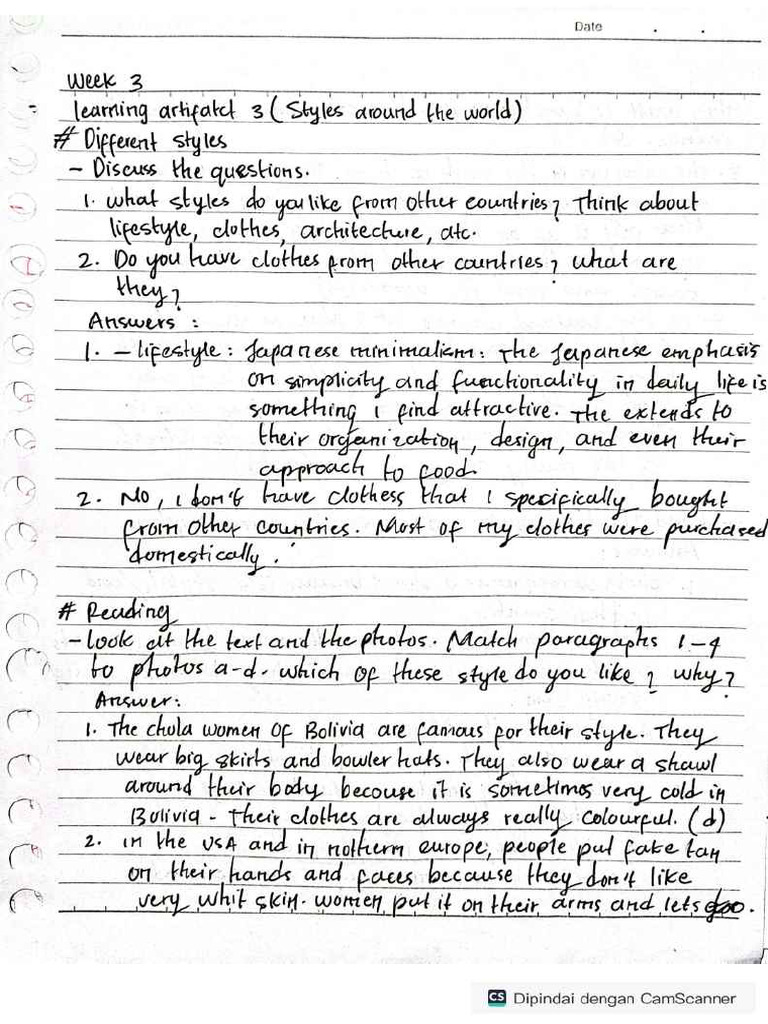 Date . .
Week 3
learning artifatct 3 (Styles around the world)
# Different styles
- Discuss the questions.
1. what styles do you like from other countries? Think about
lifestyle, clothes, architecture, atc.
2. Do you have clothes from other countries? what are
they?
Answers :
1. - lifestyle : Japanese minimalism : The Japanese emphasis
on simplicity and functionality in daily life is
something I find attractive. The extends to
their organization, design, and even their
approach to food.
2. No, I don't have clothess that I specifically bought
from other countries. Most of my clothes were purchased
domestically.
# Reading
- Look at the text and the photos. Match paragraphs 1-4
to photos a-d. which of these style do you like? why?
Answer:
1. The chola women of Bolivia are famous for their style. They
wear big skirts and bowler hats. They also wear a shawl
around their body becouse it is sometimes very cold in
Bolivia - Their clothes are always really colourful. (d)
2. in the USA and in nothern europe, people put fake tan
on their hands and faces because they don't like
very whit skin. women put it on their arms and lets too.
CS Dipindai dengan CamScanner